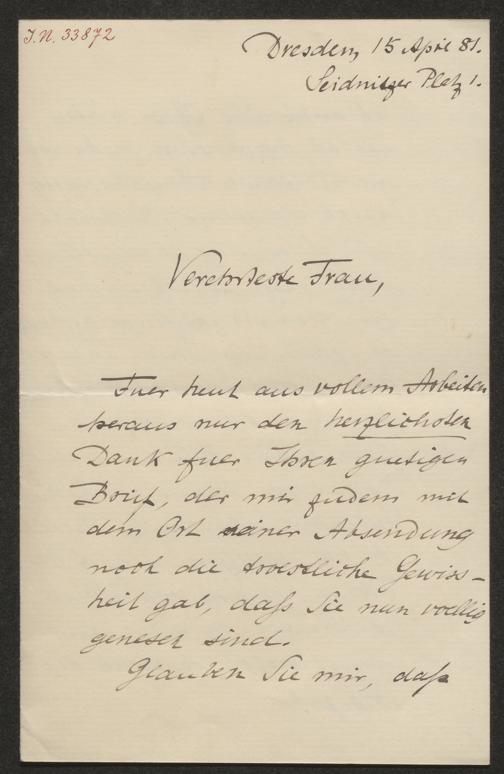 J.N. 33872
Dresden, 15 April 81.
Seidnitzer Platz 1.
Verehrteste Frau,
Fuer heut aus vollem Arbeiten
heraus nur den herzlichsten
Dank fuer Ihren guetigen
Brief, der mir zudem mit
dem Ort seiner Absendung
noch die troestliche Gewiss-
heit gab, daß Sie nun voellig
genesen sind.
Glauben Sie mir, daß